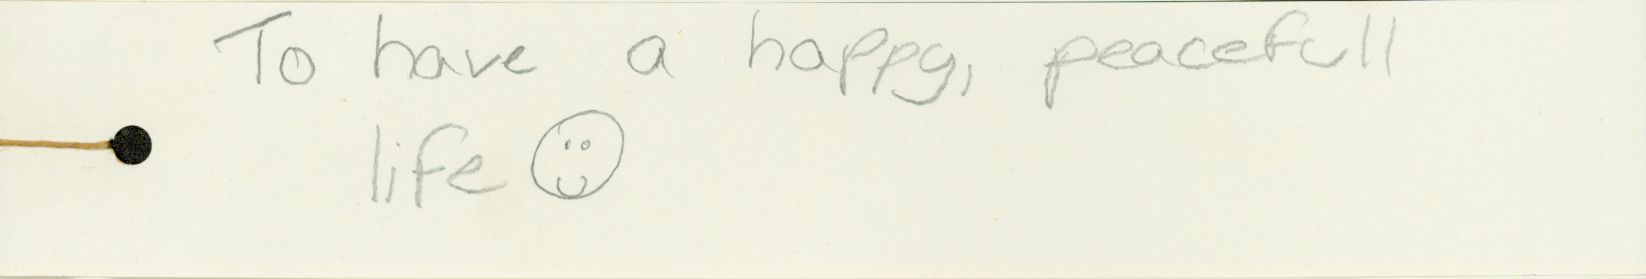 To have a happy, peacefull
life ☺